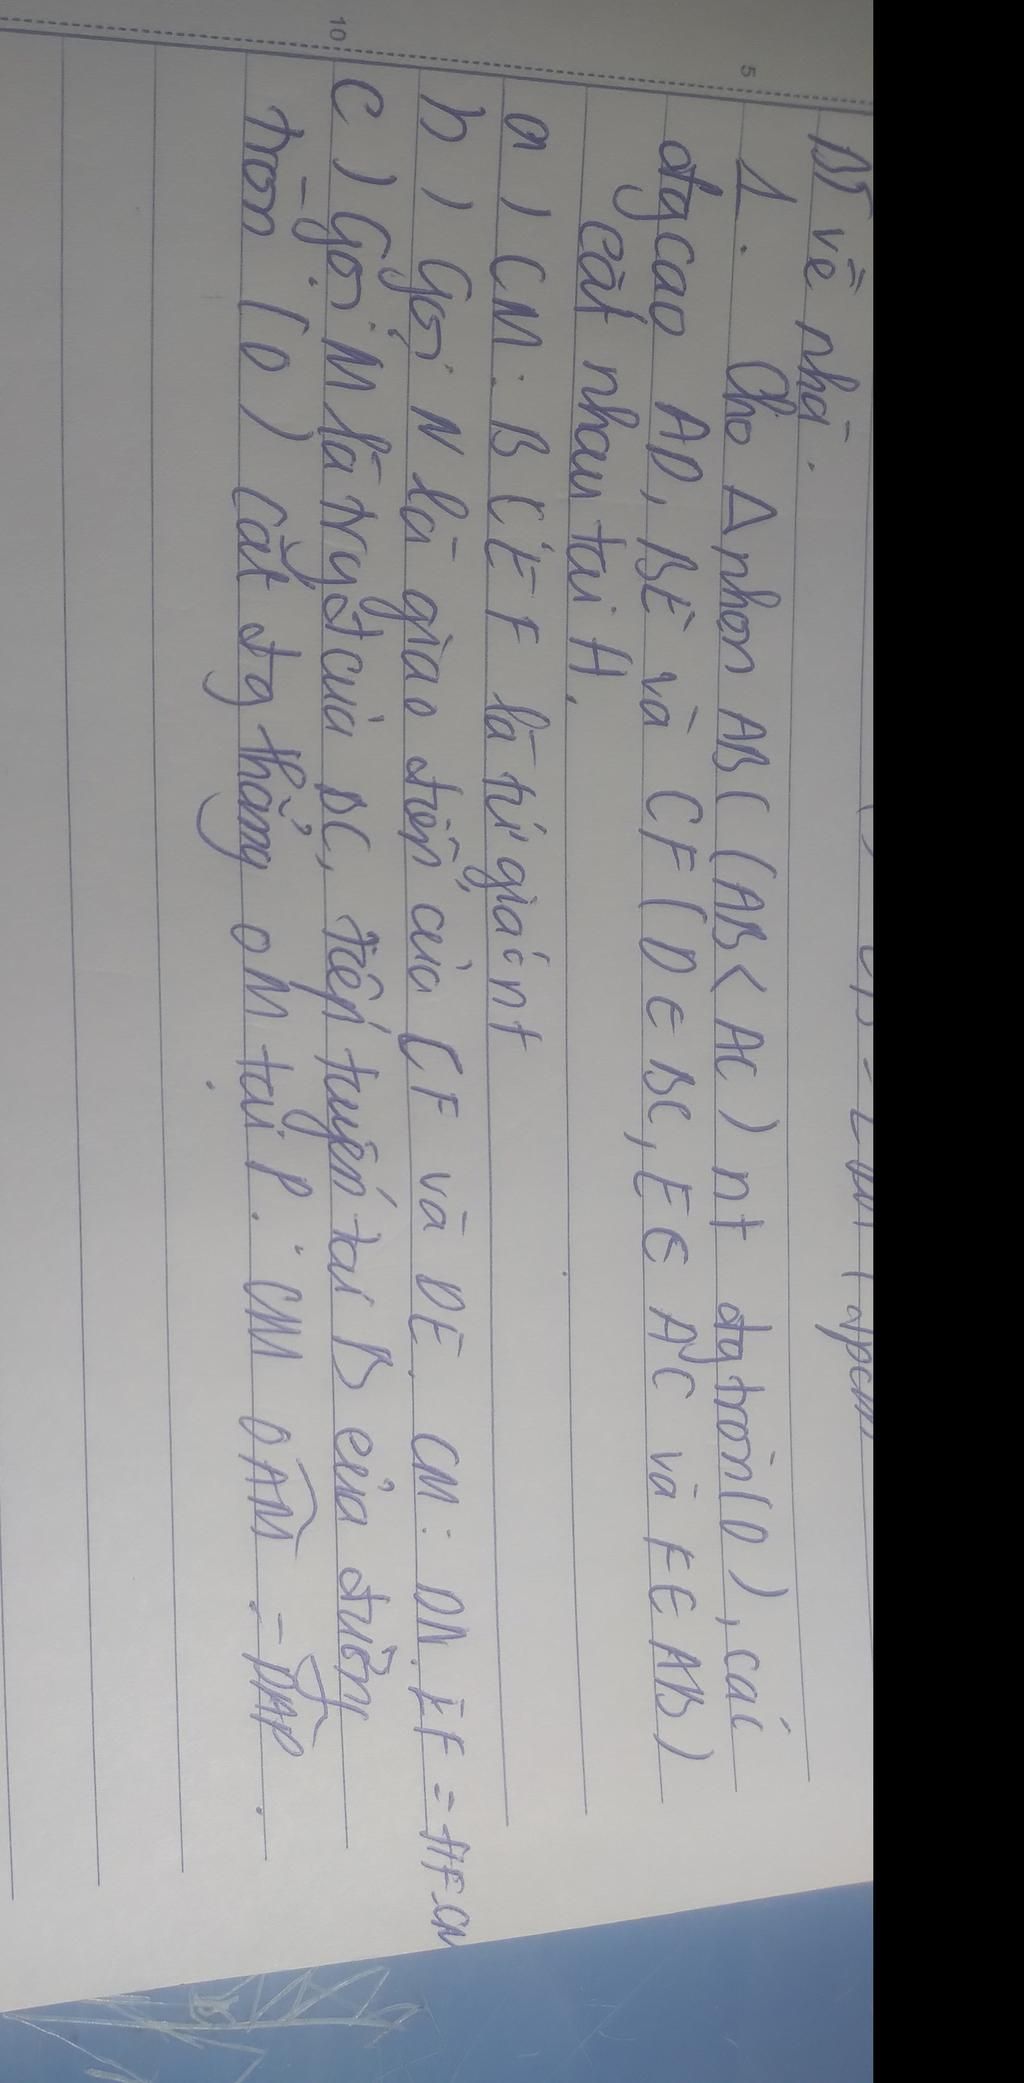 Bt về nhà.
1. Cho Δ nhọn ABC (AB < AC) nt đg tròn (O), các
đg cao AD, BE và CF (D ∈ BC, E ∈ AC và F ∈ AB)
cắt nhau tại H.
a) CM: BCEF là tứ giác nt
b) Gọi N là giao điểm của CF và DE. CM: DN.EF = HF.CN
c) Gọi M là trg đ của BC, tiếp tuyến tại B của đường
tròn (O) cắt đg thẳng OM tại P. CM OAM = DAP.
5
10